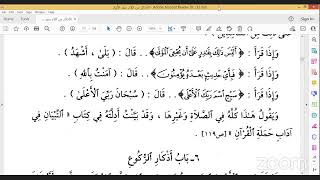 وَإِذَا قَرَأَ : ﴿أَلَيْسَ ذَٰلِكَ بِقَادِرٍ عَلَىٰ أَن يُحْيِيَ الْمَوْتَىٰ﴾ .. قَالَ : ( بَلَىٰ ، أَشْهَدُ ) .
وَإِذَا قَرَأَ : ﴿فَبِأَيِّ حَدِيثٍ بَعْدَهُ يُؤْمِنُونَ﴾ .. قَالَ : ( آمَنْتُ بِاللهِ ) .
وَإِذَا قَرَأَ : ﴿سَبِّحِ اسْمَ رَبِّكَ الْأَعْلَى﴾ .. قَالَ : ( سُبْحَانَ رَبِّيَ الْأَعْلَىٰ ) .
وَيَقُولُ هَٰذَا كُلَّهُ فِي الصَّلَاةِ وَغَيْرِهَا ، وَقَدْ بَيَّنْتُ أَدِلَّتَهُ فِي كِتَابِ « التِّبْيَانِ فِي
آدَابِ حَمَلَةِ الْقُرْآنِ » [ص١١٩] .
٦- بَابُ أَذْكَارِ الرُّكُوعِ
zoom